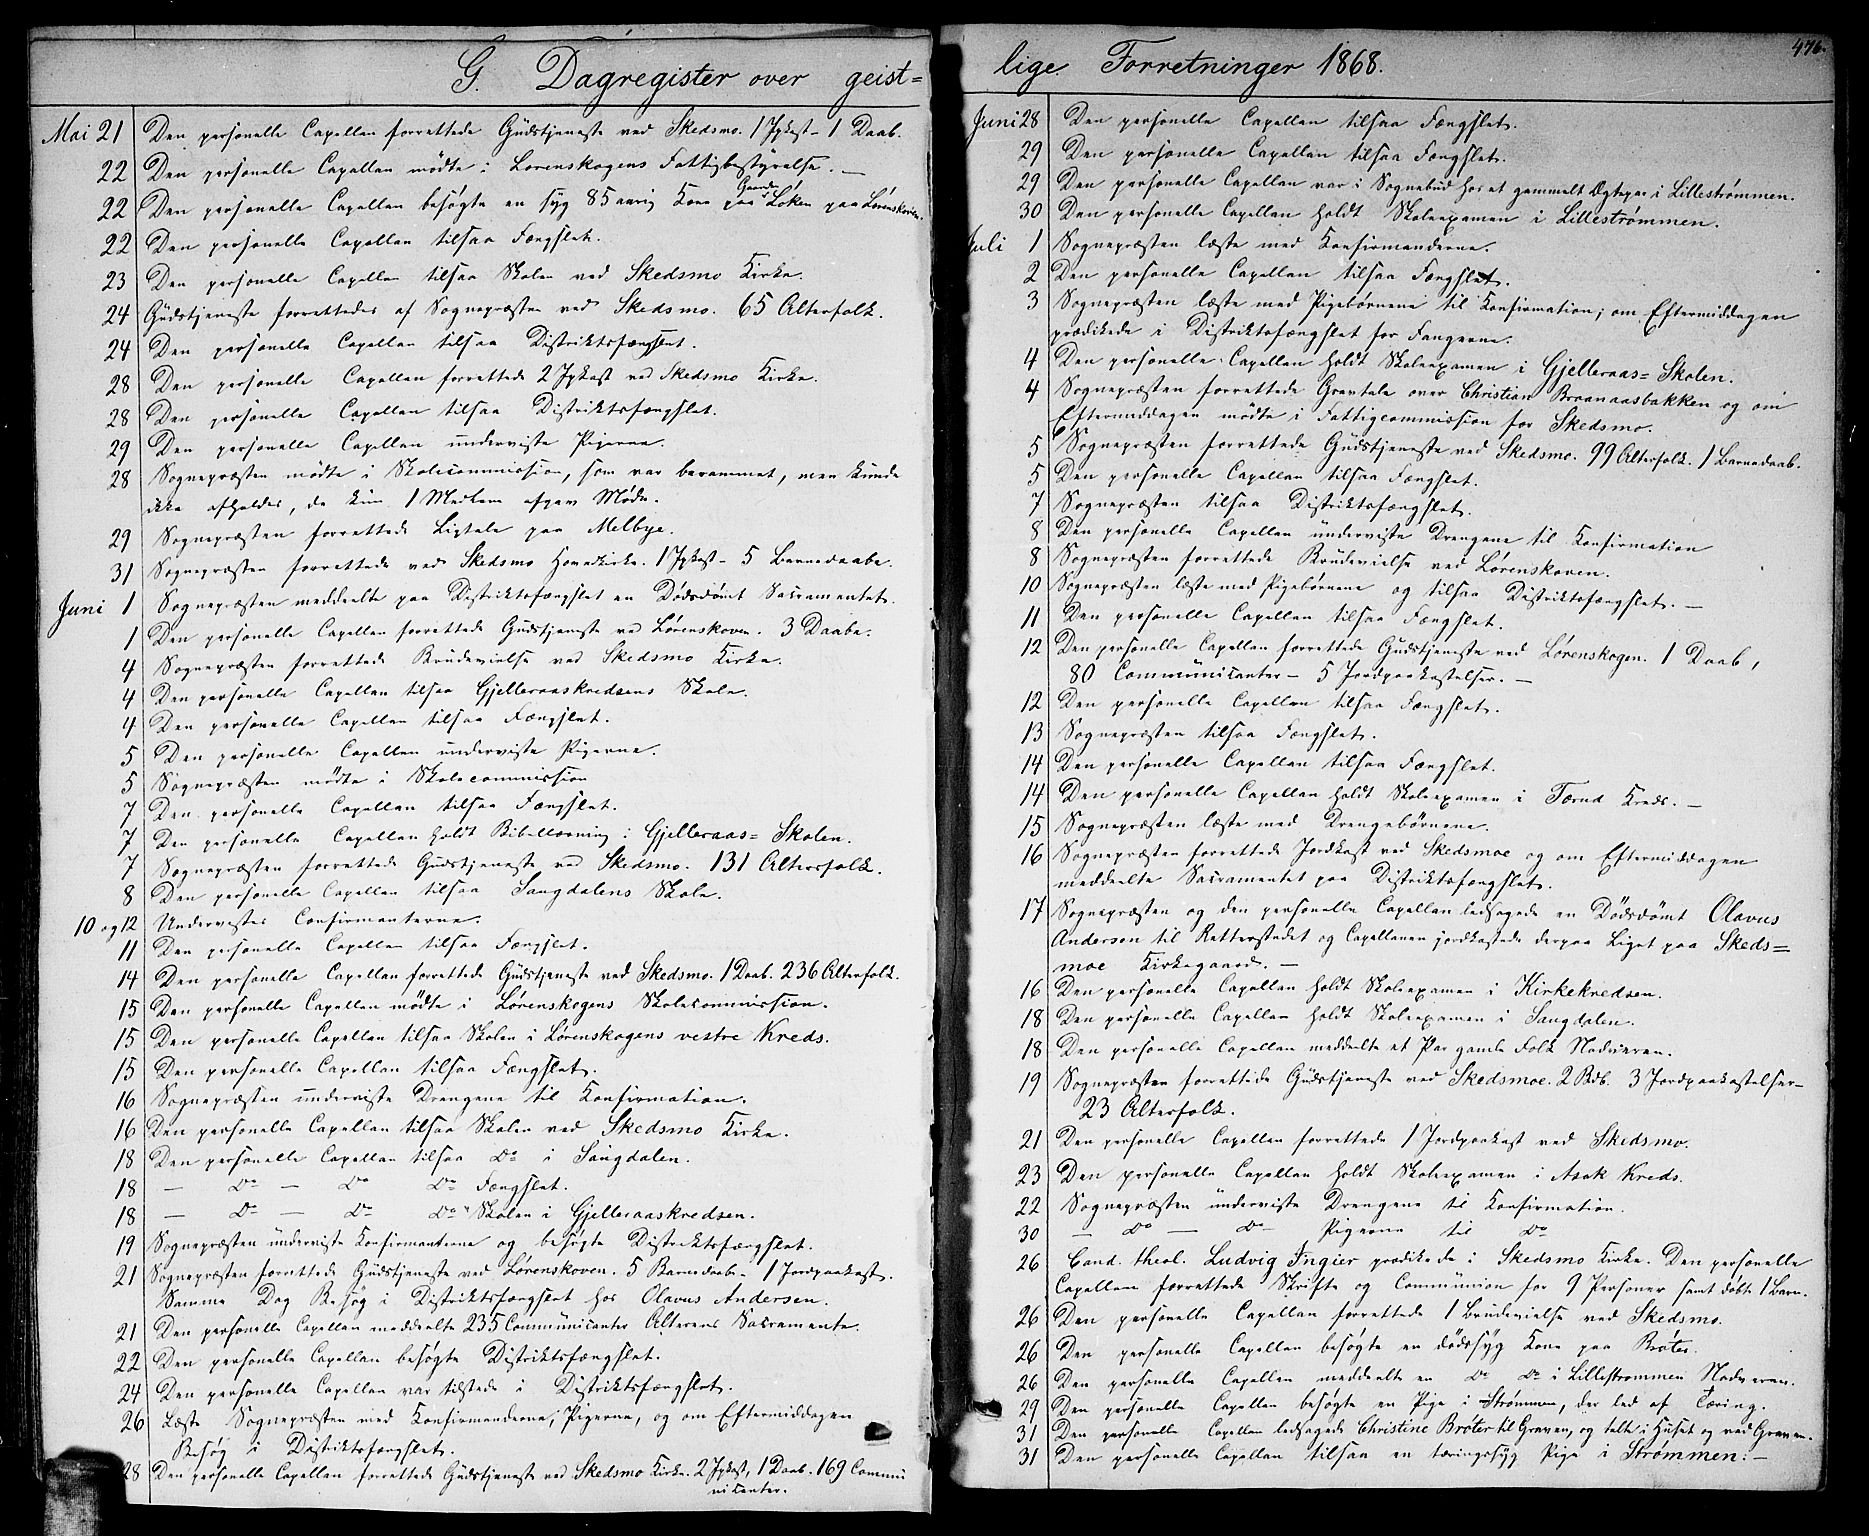 G. Dagregister over geist=
Mai 21 Den personelle Capellan forrettede Gudstjeneste ved Skedsmo. 1 Jpkast – 1 Daab.
22 Den personelle Capellan mødte i Lørenskogens Fattigbestyrelse. —
22 Den personelle Capellan besøgte en syg 85 aarig Kone paa Gaarden Løken paa Lørenskoven.
22 Den personelle Capellan tilsaa Fængslet.
23 Den personelle Capellan tilsaa Skolen ved Skedsmo Kirke.
24 Gudstjeneste forrettedes af Sognepræsten ved Skedsmo. 65 Alterfolk.
24 Den personelle Capellan tilsaa Distriktsfængslet.
28 Den personelle Capellan forrettede 2 Jpkast ved Skedsmo Kirke.
28 Den personelle Capellan tilsaa Distriktsfængslet.
29 Den personelle Capellan underviste Pigerne.
28 Sognepræsten mødte i Skolecommission, som var berammet, men kunde
ikke afholdes, da kun 1 Medlem afgav Møde.
29 Sognepræsten forrettede Ligtale paa Melbye.
31 Sognepræsten forrettede ved Skedsmo Hovedkirke. 1 Jpkast – 5 Barnedaabe.
Juni 1 Sognepræsten meddeelte paa Distriktsfængslet en Dødsdømt Sacramentet.
1 Den personelle Capellan forrettede Gudstjeneste ved Lørenskoven. 3 Daabe.
4 Sognepræsten forrettede Brudevielse ved Skedsmo Kirke.
4 Den personelle Capellan tilsaa Gjelleraaskredsens Skole.
4 Den personelle Capellan tilsaa Fængslet.
5 Den personelle Capellan underviste Pigerne.
5 Sognepræsten mødte i Skolecommission
7 Den personelle Capellan tilsaa Fængslet.
7 Den personelle Capellan holdt Bibellæsning i Gjelleraas= Skolen.
7 Sognepræsten forrettede Gudstjeneste ved Skedsmo. 131 Alterfolk.
8 Den personelle Capellan tilsaa Sangdalens Skole.
10 og 12 Undervistes Confirmanterne.
11 Den personelle Capellan tilsaa Fængslet.
14 Den personelle Capellan forrettede Gudstjeneste ved Skedsmo. 1 Daab. 236 Alterfolk.
15 Den personelle Capellan mødte i Lørenskogens Skolecommission.
15 Den personelle Capellan tilsaa Skolen i Lørenskogens vestre Kreds.
15 Den personelle Capellan tilsaa Fængslet.
16 Sognepræsten underviste Drengene til Konfirmation.
16 Den personelle Capellan tilsaa Skolen ved Skedsmo Kirke.
18 Den personelle Capellan tilsaa Do i Sangdalen.
18 — Do — Do Do Fængslet.
18 — Do — Do Do Skolen i Gjelleraaskredsen.
19 Sognepræsten underviste Konfirmanterne og besøgte Distriktsfængslet.
21 Sognepræsten forrettede Gudstjeneste ved Lørenskoven. 5 Barnedaab – 1 Jordpaakast.
Samme Dag Besøg i Distriktsfængslet hos Olavus Andersen.
21 Den personelle Capellan meddeelte 235 Communicanter Alterens Sacramente.
22 Den personelle Capellan besøgte Distriktsfængslet.
24 Den personelle Capellan var tilstede i Distriktsfængslet.
26 Læste Sognepræsten med Konfirmanderne, Pigerne, og om Eftermiddagen
Besøg i Distriktsfængslet.
28 Den personelle Capellan forrettede Gudstjeneste ved Skedsmo Kirke. 2 Jpkast, 1 Daab. 169 Commu
nicanter.
lige Forretninger 1868.
476.
Juni 28 Den personelle Capellan tilsaa Fængslet.
29 Den personelle Capellan tilsaa Fængslet.
29 Den personelle Capellan var i Sognebud hos et gammelt Ægtepar i Lillestrømmen.
30 Den personelle Capellan holdt Skoleexamen i Lillestrømmen.
Juli 1 Sognepræsten læste med Konfirmanderne.
2 Den personelle Capellan tilsaa Fængslet.
3 Sognepræsten læste med Pigebørnene til Konfirmation; om Eftermiddagen
prædikede i Distriktsfængslet for Fangerne.
4 Den personelle Capellan holdt Skoleexamen i Gjelleraas= Skolen.
4 Sognepræsten forrettede Gravtale over Christian Braanaasbakken og om
Eftermiddagen mødte i Fattigcommission for Skedsmo.
5 Sognepræsten forrettede Gudstjeneste ved Skedsmo. 99 Alterfolk. 1 Barnedaab.
5 Den personelle Capellan tilsaa Fængslet.
7 Sognepræsten tilsaa Distriktsfængslet.
8 Den personelle Capellan underviste Drengene til Konfirmation
8 Sognepræsten forrettede Brudevielse ved Lørenskoven.
10 Sognepræsten læste med Pigebørnene og tilsaa Distriktsfængslet. —
11 Den personelle Capellan tilsaa Fængslet.
12 Den personelle Capellan forrettede Gudstjeneste ved Lørenskogen. 1 Daab,
80 Communicanter – 5 Jordpaakastelser. —
12 Den personelle Capellan tilsaa Fængslet.
13 Sognepræsten tilsaa Fængslet.
14 Den personelle Capellan tilsaa Fængslet.
14 Den personelle Capellan holdt Skoleexamen i Tærud Kreds. —
15 Sognepræsten læste med Drengebørnene.
16 Sognepræsten forrettede Jordkast ved Skedsmoe og om Eftermiddagen
meddeelte Sacramentet paa Distriktsfængslet.
17 Sognepræsten og den personelle Capellan ledsagede en Dødsdømt Olavus
Andersen til Retterstedet og Capellanen jordkastede derpaa Liget paa Skeds=
moe Kirkegaard. —
16 Den personelle Capellan holdt Skoleexamen i Kirkekredsen.
18 Den personelle Capellan holdt Skoleexamen i Sangdalen.
18 Den personelle Capellan meddeelte et Par gamle Folk Nadveren.
19 Sognepræsten forrettede Gudstjeneste ved Skedsmoe. 2 Bdb. 3 Jordpaakastelser –
23 Alterfolk.
21 Den personelle Capellan forrettede 1 Jordpaakast ved Skedsmo.
23 Den personelle Capellan holdt Skoleexamen i Asak Kreds.
22 Sognepræsten underviste Drengene til Konfirmation.
30 — Do — Do Pigerne til Do
26 Cand. theol. Ludvig Ingier prædikede i Skedsmo Kirke. Den personelle
Capellan forrettede Skrifte og Communion for 9 Personer samt døbte 1 Barn.
26 Den personelle Capellan forrettede 1 Brudevielse ved Skedsmo.
26 Den personelle Capellan besøgte en dødssyg Kone paa Brøter.
26 Den personelle Capellan meddeelte en Do Do i Lillestrømmen Nadveren.
29 Den personelle Capellan besøgte en Pige i Strømmen, der led af Tæring.
31 Den personelle Capellan ledsagede Christine Brøter til Graven, og talte i Huset og ved Graven.
31 Den personelle Capellan tilsaa en tæringssyg Pige i Strømmen. —